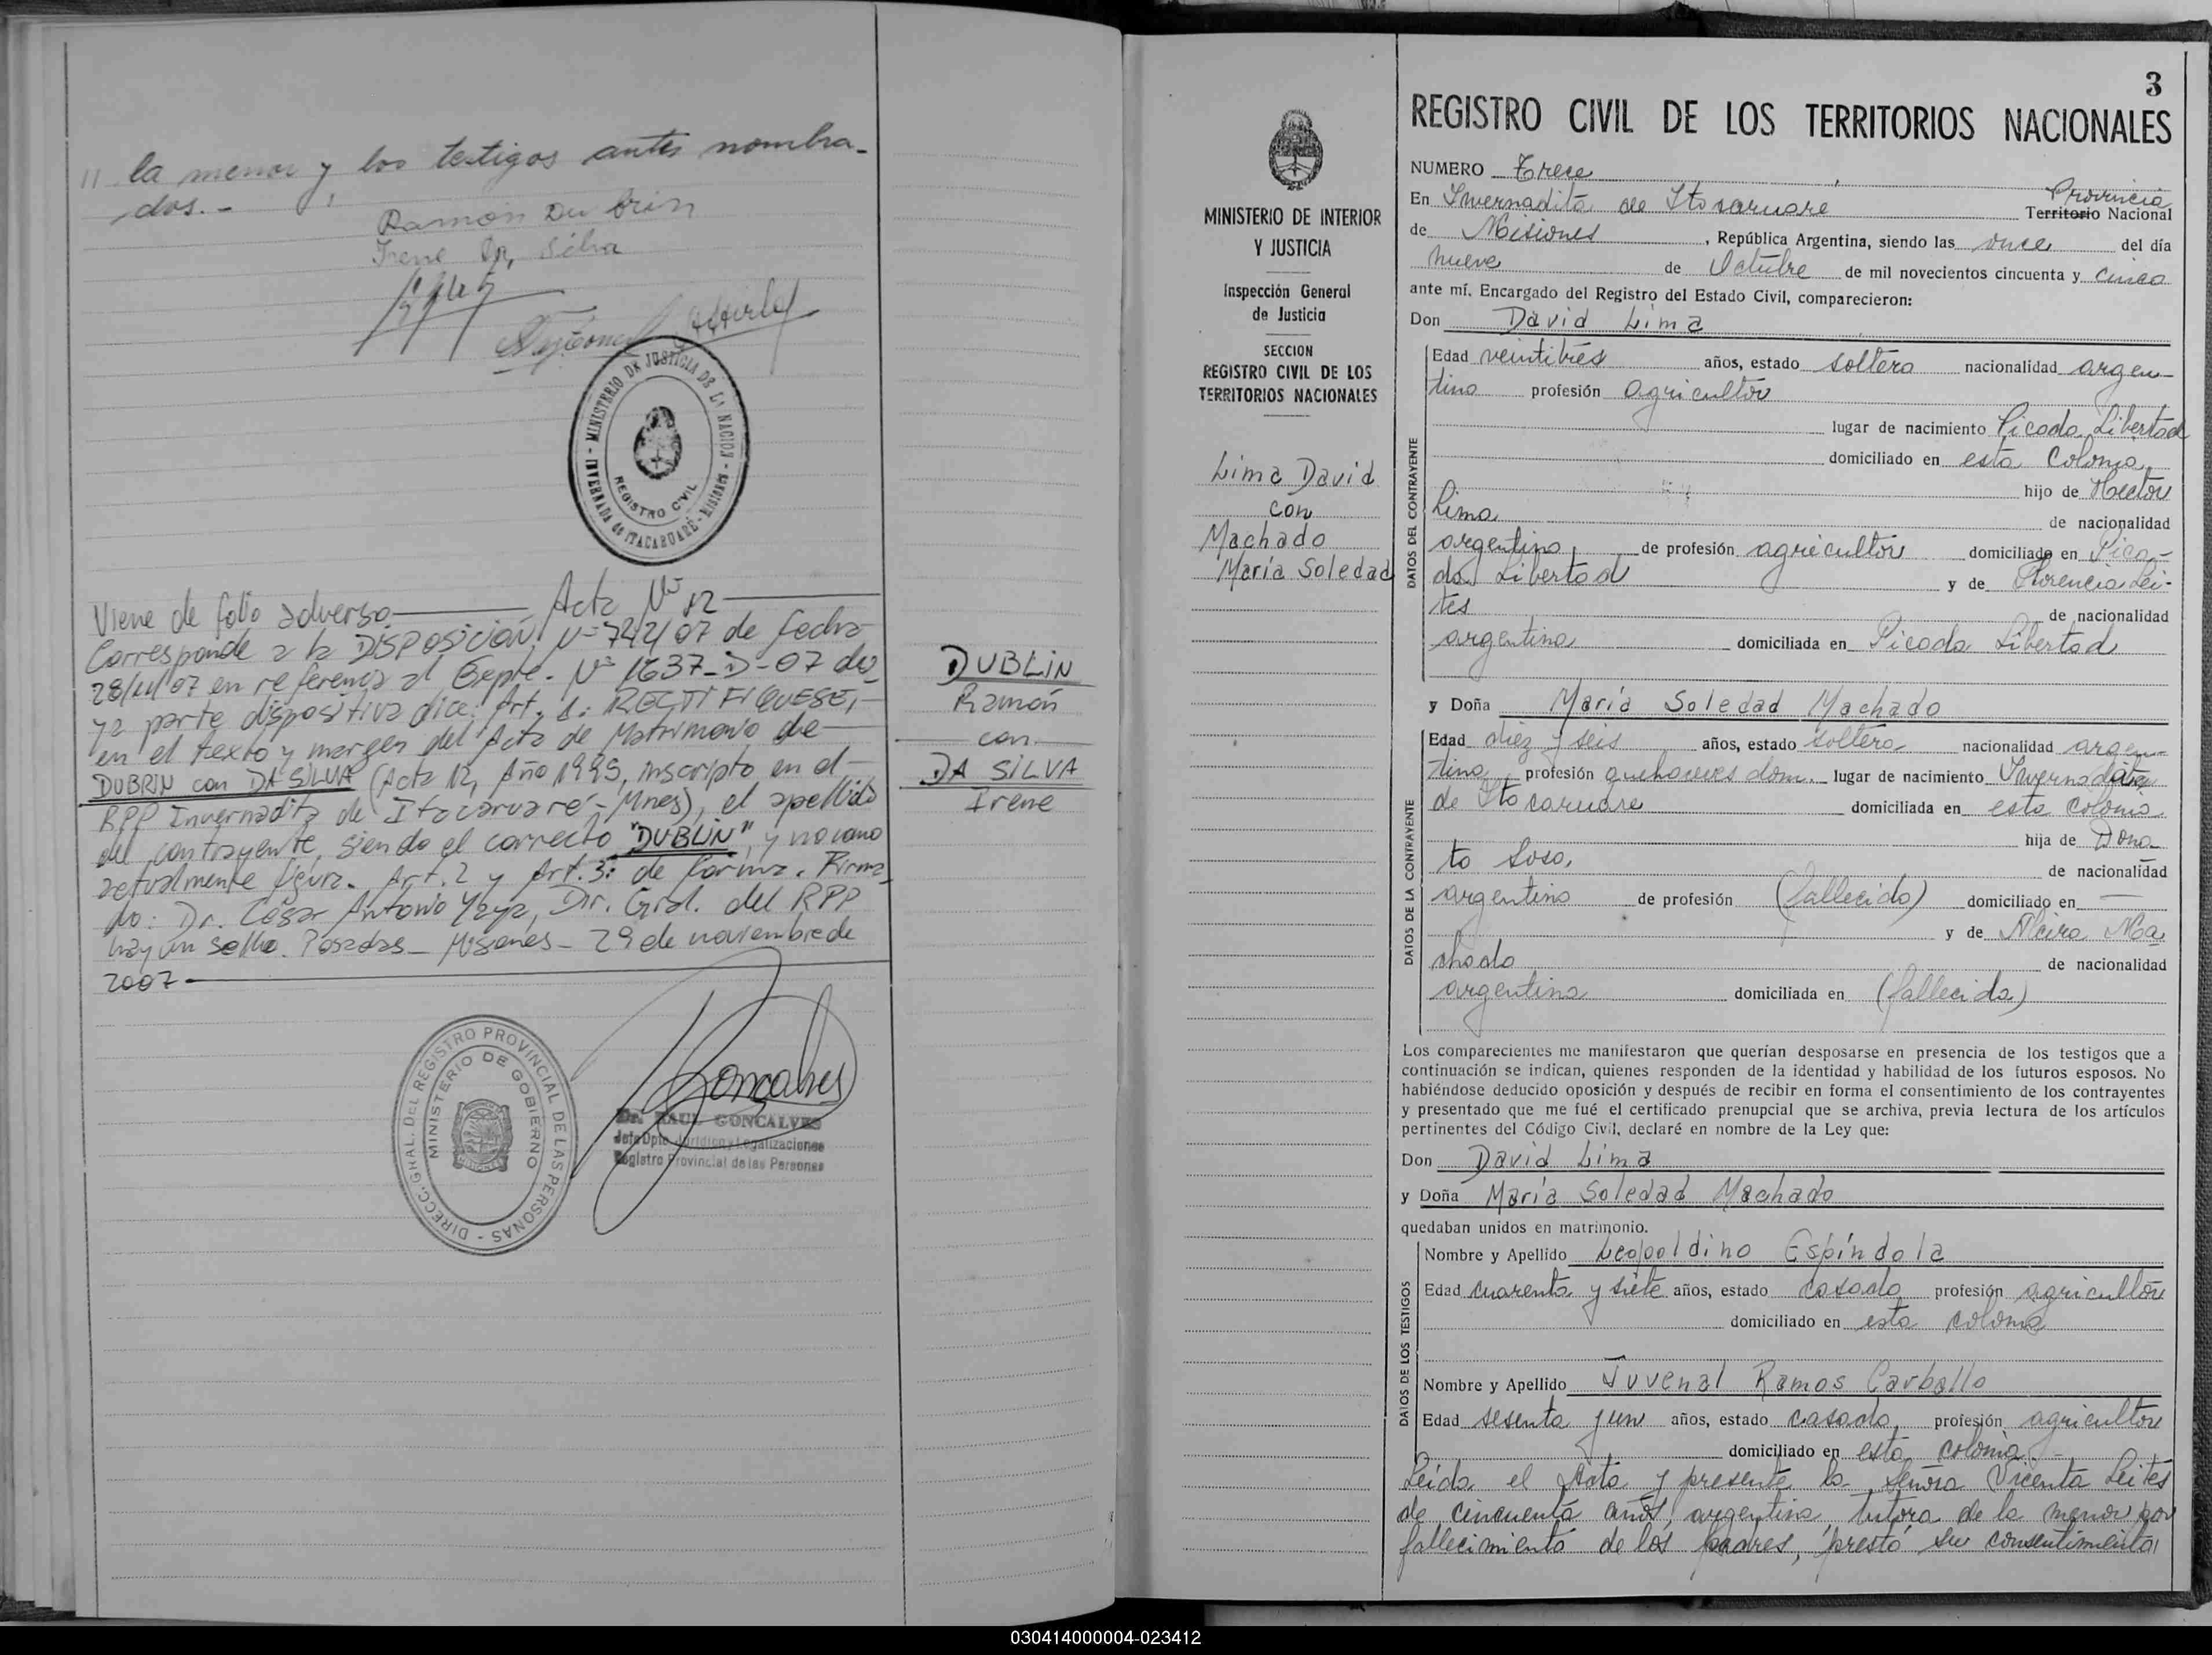 11 la menor y los testigos antes nombra-
dos.-
Ramón Du brin
Irene Da Silva
MINISTERIO DE JUSTICIA DE LA NACION - INVERNADA de ITACARUARÉ - MISIONES -
REGISTRO CIVIL
Viene de folio adverso Acta Nº 12
Corresponde a la DISPOSICIÓN Nº 742/07 de fecha
28/11/07 en referencia al Expte. Nº 1637-D-07 cu
ya parte dispositiva dice: Art. 1: RECTIFIQUESE,
en el texto y margen del Acta de Matrimonio de
DUBRIN con DA SILVA (Acta 12, Año 1995, inscripto en el
RPP Invernadita de Itacaruaré-Mnes), el apellido
del contrayente, siendo el correcto "DUBLIN", y no como
actualmente figura. Art. 2 y Art. 3: de forma. Firma
do: Dr. César Antonio Yaya, Dir. Gral. del RPP
hay un sello. Posadas - Misiones - 29 de noviembre de
2007
DUBLIN
Ramón
con
DA SILVA
Irene
DIRECC. GRAL. DEL REGISTRO PROVINCIAL DE LAS PERSONAS -
MINISTERIO DE GOBIERNO
Goncalves
Dr. RAUL GONCALVES
Jefe Dpto. Jurídico y Legalizaciones
Registro Provincial de las Personas
3
MINISTERIO DE INTERIOR
Y JUSTICIA
Inspección General
de Justicia
SECCION
REGISTRO CIVIL DE LOS
TERRITORIOS NACIONALES
Lima David
con
Machado
María Soledad
REGISTRO CIVIL DE LOS TERRITORIOS NACIONALES
NUMERO Trece
Provincia
En Invernadita de Itacaruare Territorio Nacional
de Misiones, República Argentina, siendo las once del día
nueve de Octubre de mil novecientos cincuenta y cinco
ante mí, Encargado del Registro del Estado Civil, comparecieron:
Don David Lima
DATOS DEL CONTRAYENTE
Edad veintitres años, estado soltero nacionalidad argen-
tino profesión agricultor
lugar de nacimiento Picada Libertad
domiciliado en esta Colonia,
hijo de Hector
Lima de nacionalidad
argentino, de profesión agricultor domiciliado en Pica-
da Libertad y de Florencia Lei-
tes de nacionalidad
argentina domiciliada en Picada Libertad
y Doña María Soledad Machado
DATOS DE LA CONTRAYENTE
Edad diez y seis años, estado soltera nacionalidad argen-
tina profesión quehaceres dom. lugar de nacimiento Invernadita
de Itacaruare domiciliada en esta colonia
hija de Dona-
to Soso, de nacionalidad
argentino de profesión (fallecido) domiciliado en —
y de Neira Ma
chado de nacionalidad
argentina domiciliada en (fallecida)
Los comparecientes me manifestaron que querían desposarse en presencia de los testigos que a
continuación se indican, quienes responden de la identidad y habilidad de los futuros esposos. No
habiéndose deducido oposición y después de recibir en forma el consentimiento de los contrayentes
y presentado que me fué el certificado prenupcial que se archiva, previa lectura de los artículos
pertinentes del Código Civil, declaré en nombre de la Ley que:
Don David Lima
y Doña María Soledad Machado
quedaban unidos en matrimonio.
DATOS DE LOS TESTIGOS
Nombre y Apellido Leopoldino Espíndola
Edad cuarenta y siete años, estado casado profesión agricultor
domiciliado en esta colonia
Nombre y Apellido Juvenal Ramos Carballo
Edad sesenta y un años, estado casado, profesión agricultor
domiciliado en esta colonia.-
Leída el Acta y presente la señora Vicenta Leites
de cincuenta años, argentina, tutora de la menor por
fallecimiento de los padres, prestó su consentimiento
030414000004-023412